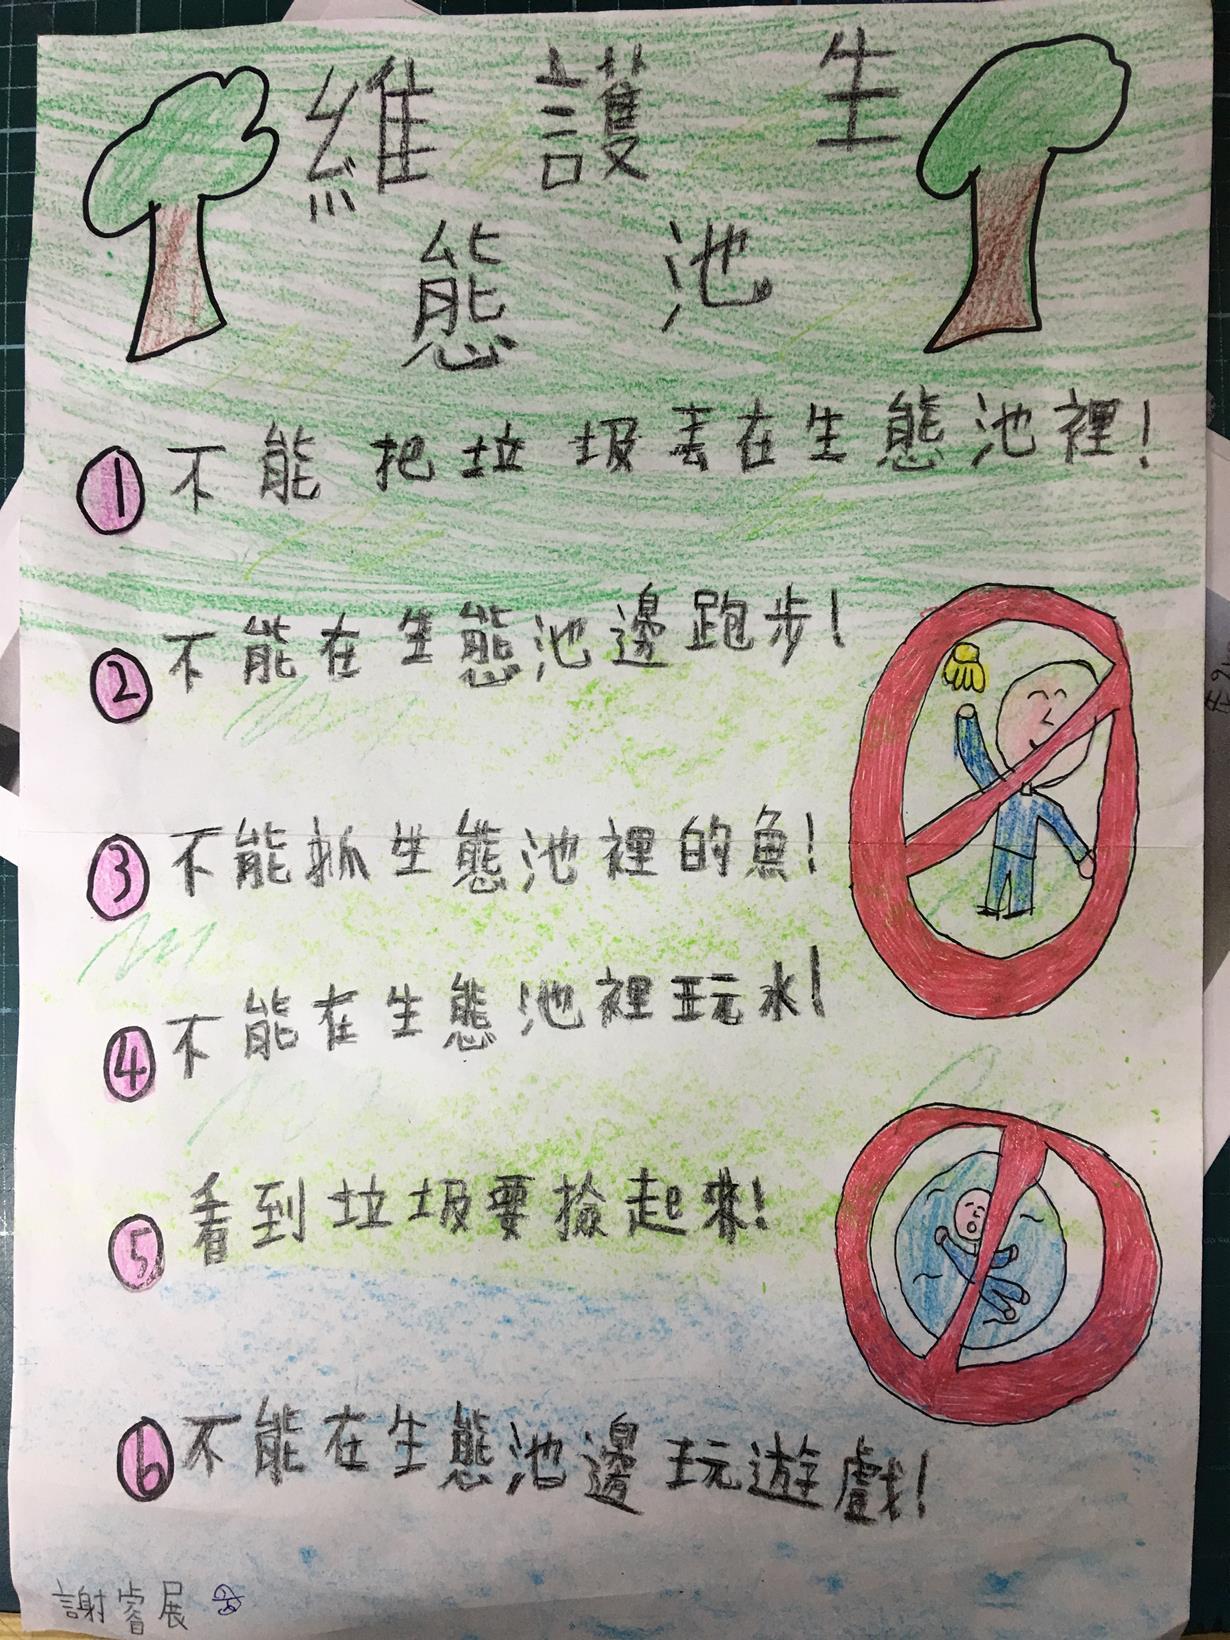 維護生
態池
1 不能把垃圾丟在生態池裡!
2 不能在生態池邊跑步!
3 不能抓生態池裡的魚!
4 不能在生態池裡玩水!
5 看到垃圾要撿起來!
6 不能在生態池邊玩遊戲!
謝睿展